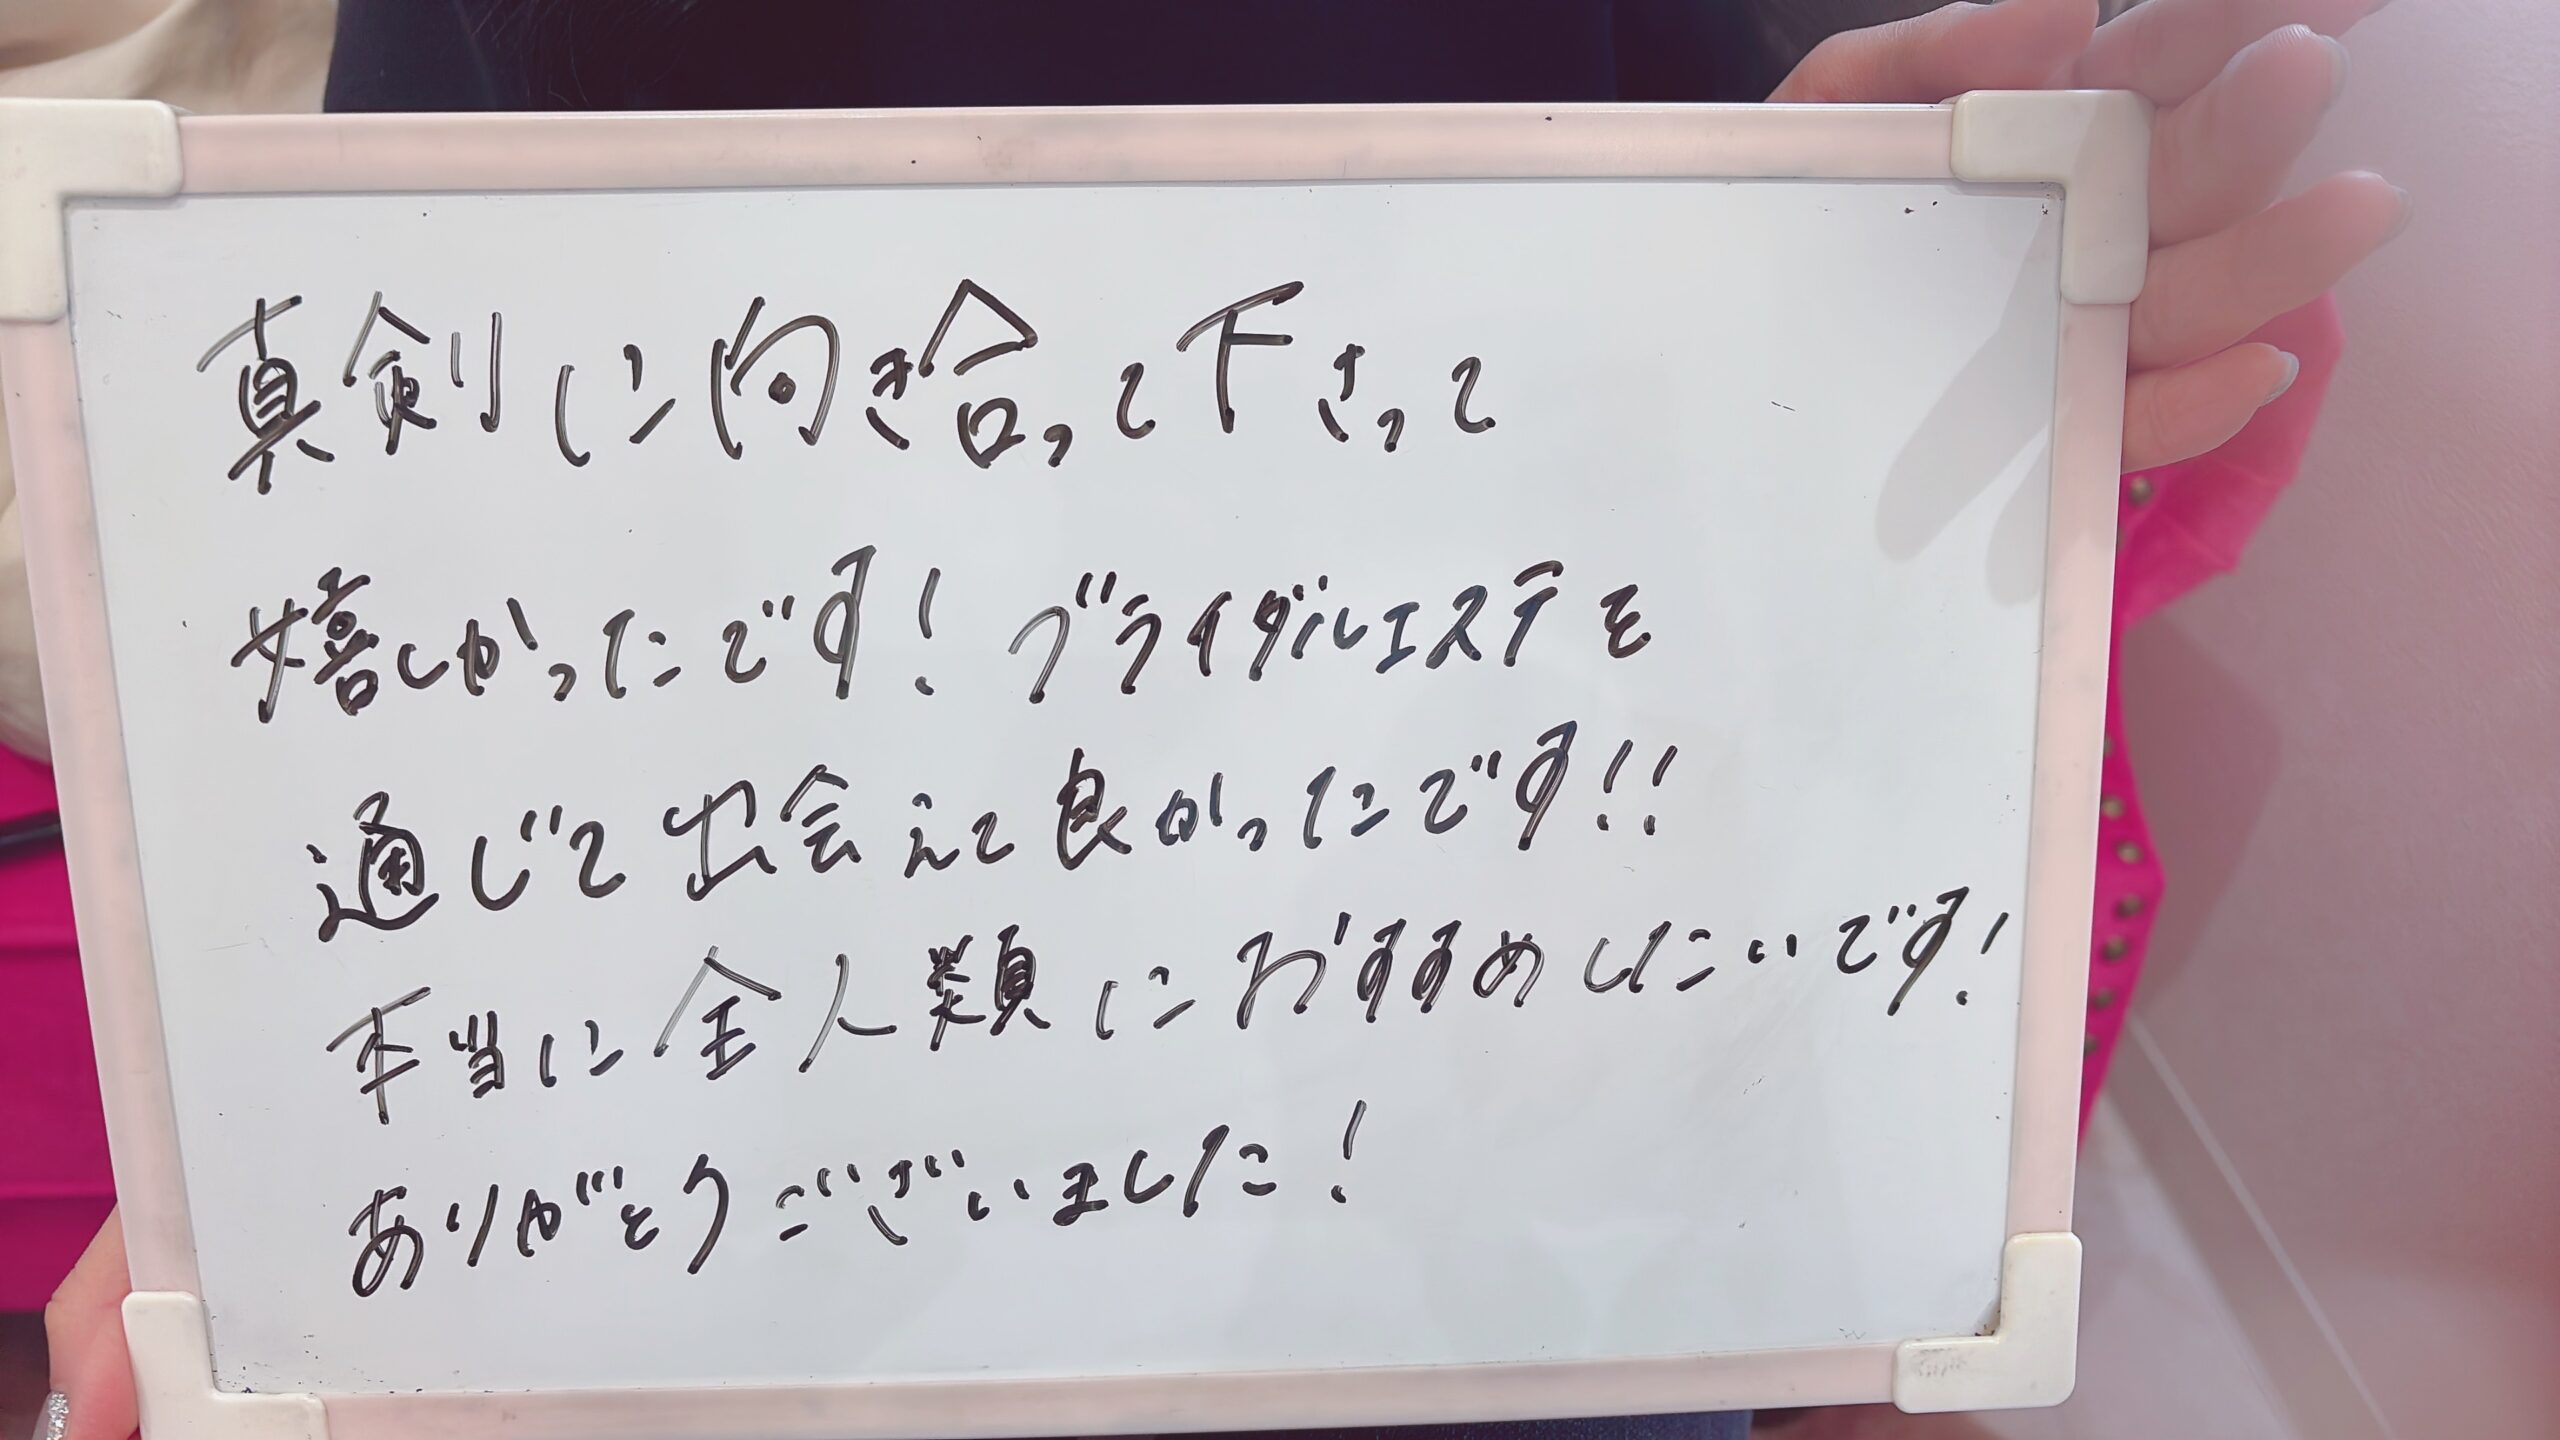 真剣に向き合って下さって
嬉しかったです!ブライダルエステを
通じて出会えて良かったです!!
本当に全人類におすすめしたいです!
ありがとうございました!